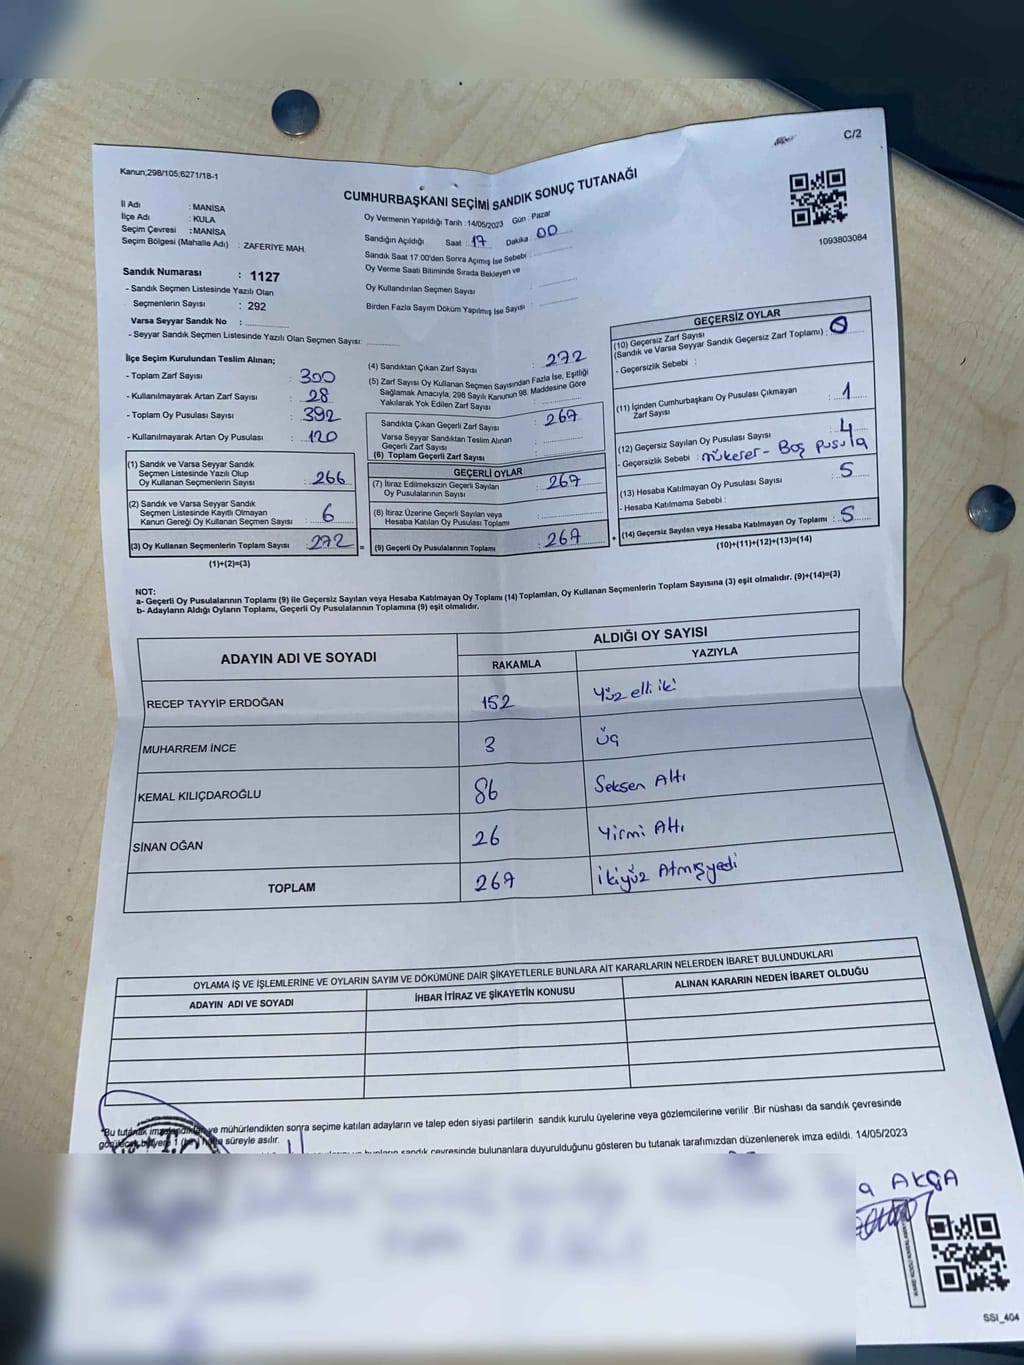 C/2
Kanun;298/105;6271/18-1
CUMHURBAŞKANI SEÇİMİ SANDIK SONUÇ TUTANAĞI
1093803084
İl Adı : MANİSA
İlçe Adı : KULA
Seçim Çevresi : MANİSA
Seçim Bölgesi (Mahalle Adı) : ZAFERİYE MAH.
Sandık Numarası : 1127
- Sandık Seçmen Listesinde Yazılı Olan
Seçmenlerin Sayısı : 292
Varsa Seyyar Sandık No :
- Seyyar Sandık Seçmen Listesinde Yazılı Olan Seçmen Sayısı:
Oy Vermenin Yapıldığı Tarih : 14/05/2023 Gün : Pazar
Sandığın Açıldığı Saat : 17 Dakika : 00
Sandık Saat 17:00'den Sonra Açımış İse Sebebi :
Oy Verme Saati Bitiminde Sırada Bekleyen ve
Oy Kullandırılan Seçmen Sayısı :
Birden Fazla Sayım Döküm Yapılmış İse Sayısı :
İlçe Seçim Kurulundan Teslim Alınan;
- Toplam Zarf Sayısı : 300
- Kullanılmayarak Artan Zarf Sayısı : 28
- Toplam Oy Pusulası Sayısı : 392
- Kullanılmayarak Artan Oy Pusulası : 120
(1) Sandık ve Varsa Seyyar Sandık
Seçmen Listesinde Yazılı Olup
Oy Kullanan Seçmenlerin Sayısı : 266
(2) Sandık ve Varsa Seyyar Sandık
Seçmen Listesinde Kayıtlı Olmayan
Kanun Gereği Oy Kullanan Seçmen Sayısı : 6
(3) Oy Kullanan Seçmenlerin Toplam Sayısı : 272
(1)+(2)=(3)
(4) Sandıktan Çıkan Zarf Sayısı : 272
(5) Zarf Sayısı Oy Kullanan Seçmen Sayısından Fazla İse, Eşitliği
Sağlamak Amacıyla, 298 Sayılı Kanunun 98. Maddesine Göre
Yakılarak Yok Edilen Zarf Sayısı :
Sandıkta Çıkan Geçerli Zarf Sayısı : 267
Varsa Seyyar Sandıktan Teslim Alınan
Geçerli Zarf Sayısı :
(6) Toplam Geçerli Zarf Sayısı :
GEÇERLİ OYLAR
(7) İtiraz Edilmeksizin Geçerli Sayılan
Oy Pusulalarının Sayısı : 267
(8) İtiraz Üzerine Geçerli Sayılan veya
Hesaba Katılan Oy Pusulası Toplamı :
= (9) Geçerli Oy Pusulalarının Toplamı : 267
GEÇERSİZ OYLAR
(10) Geçersiz Zarf Sayısı
(Sandık ve Varsa Seyyar Sandık Geçersiz Zarf Toplamı) : 0
- Geçersizlik Sebebi :
(11) İçinden Cumhurbaşkanı Oy Pusulası Çıkmayan
Zarf Sayısı : 1
(12) Geçersiz Sayılan Oy Pusulası Sayısı : 4
- Geçersizlik Sebebi : mükerer - Boş pusula
(13) Hesaba Katılmayan Oy Pusulası Sayısı : 5
- Hesaba Katılmama Sebebi :
+ (14) Geçersiz Sayılan veya Hesaba Katılmayan Oy Toplamı : 5
(10)+(11)+(12)+(13)=(14)
NOT:
a- Geçerli Oy Pusulalarının Toplamı (9) ile Geçersiz Sayılan veya Hesaba Katılmayan Oy Toplamı (14) Toplamları, Oy Kullanan Seçmenlerin Toplam Sayısına (3) eşit olmalıdır. (9)+(14)=(3)
b- Adayların Aldığı Oyların Toplamı, Geçerli Oy Pusulalarının Toplamına (9) eşit olmalıdır.
ADAYIN ADI VE SOYADI
ALDIĞI OY SAYISI
RAKAMLA YAZIYLA
RECEP TAYYİP ERDOĞAN 152 Yüz elli iki
MUHARREM İNCE 3 Üç
KEMAL KILIÇDAROĞLU 86 Seksen Altı
SİNAN OĞAN 26 Yirmi Altı
TOPLAM 267 ikiyüz Atmışyedi
OYLAMA İŞ VE İŞLEMLERİNE VE OYLARIN SAYIM VE DÖKÜMÜNE DAİR ŞİKAYETLERLE BUNLARA AİT KARARLARIN NELERDEN İBARET BULUNDUKLARI
ADAYIN ADI VE SOYADI İHBAR İTİRAZ VE ŞİKAYETİN KONUSU ALINAN KARARIN NEDEN İBARET OLDUĞU
*Bu tutanak ve mühürlendikten sonra seçime katılan adayların ve talep eden siyasi partilerin sandık kurulu üyelerine veya gözlemcilerine verilir .Bir nüshası da sandık çevresinde
süreyle asılır.
sandık çevresinde bulunanlara duyurulduğunu gösteren bu tutanak tarafımızdan düzenlenerek imza edildi. 14/05/2023
AKÇA
SSI_404